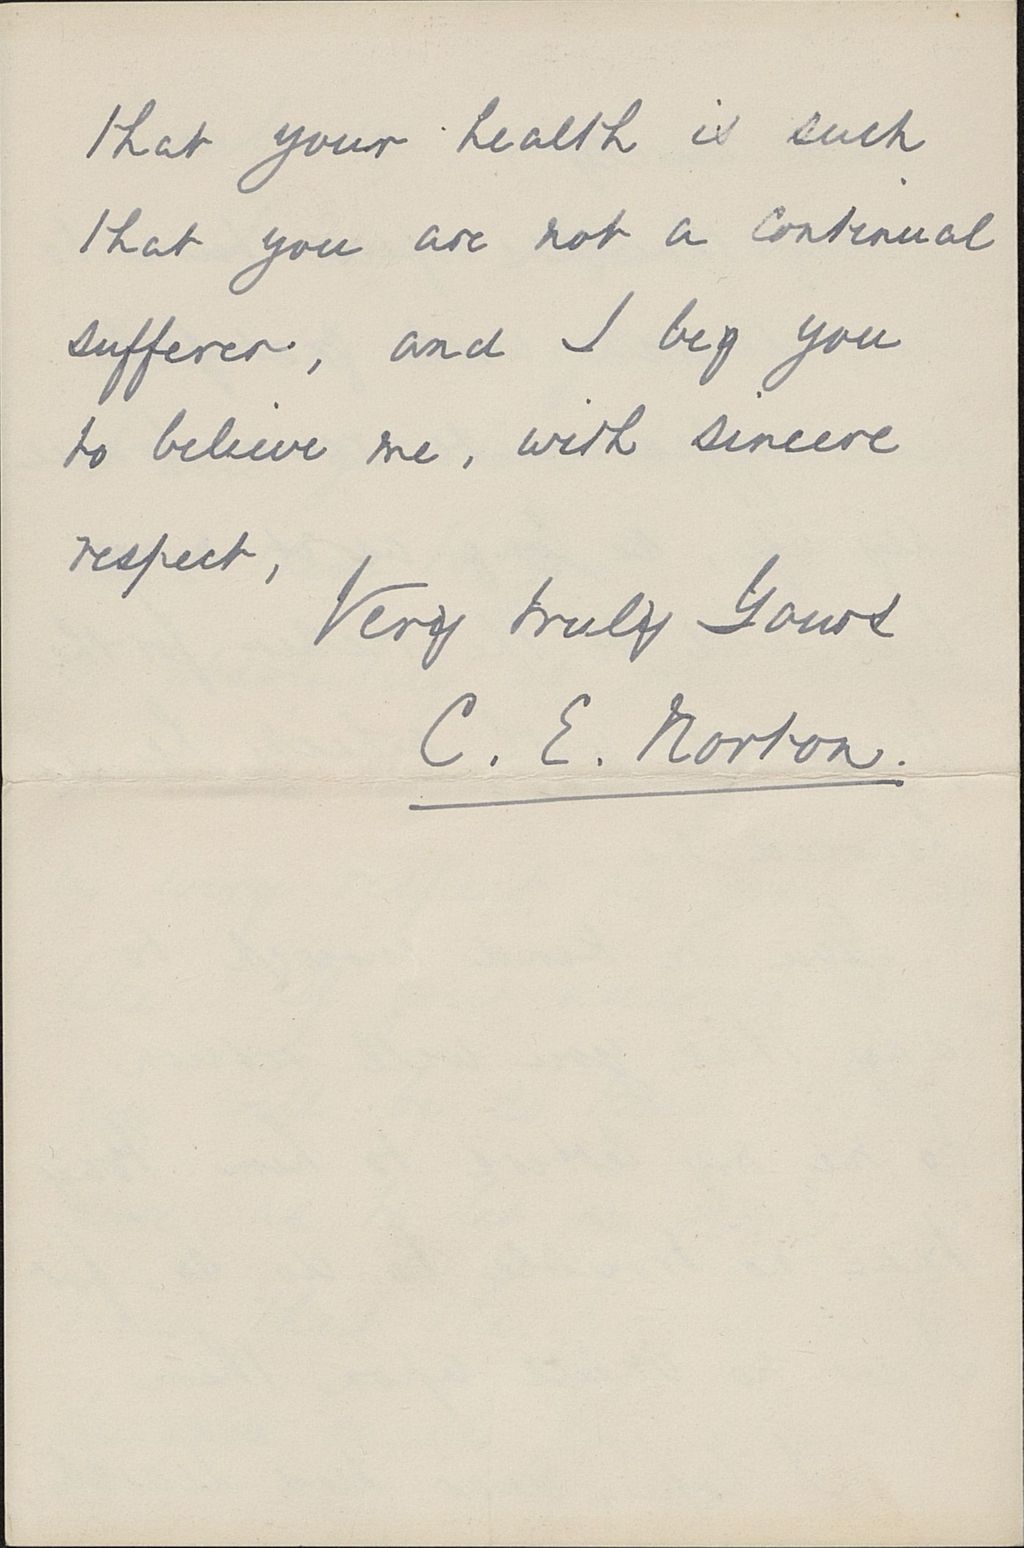 that your health is such
that you are not a continual
sufferer, and I beg you
to believe me, with sincere
respect,
Very truly Yours
C. E. Norton.